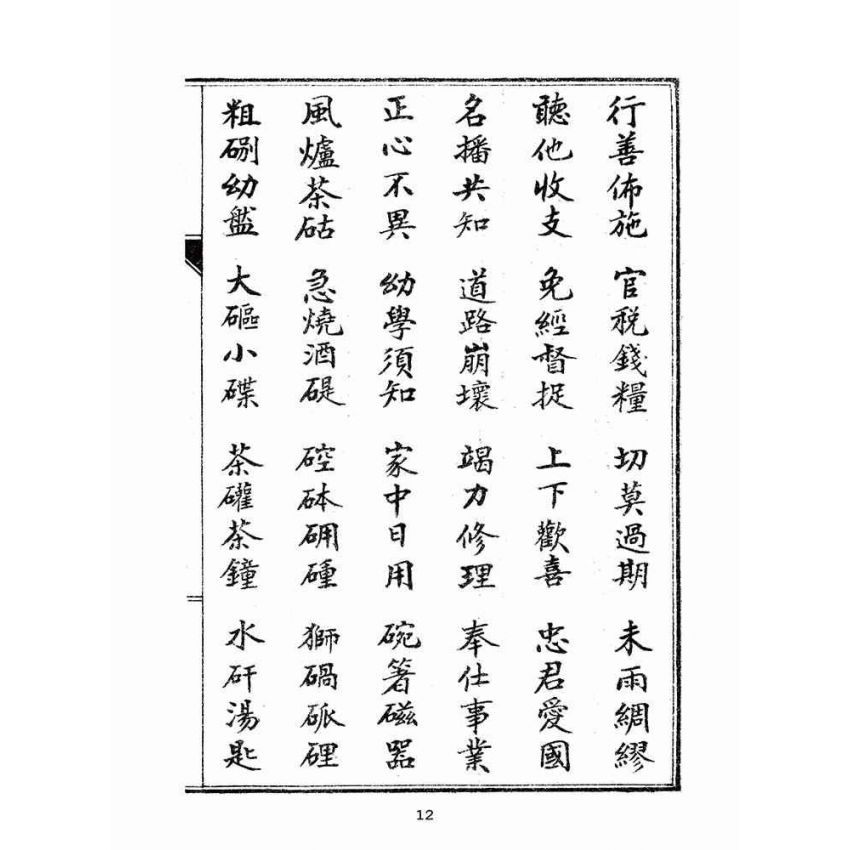 行善佈施 官税錢糧 切莫過期 未雨綢繆
聽他收支 免經督捉 上下歡喜 忠君愛國
名播共知 道路崩壞 竭力修理 奉仕事業
正心不異 幼學須知 家中日用 碗箸磁器
風爐茶砧 急燒酒碮 硿砵硼硾 獅碢砯硬
粗硎幼盤 大磘小碟 茶礶茶鐘 水矸湯匙
12